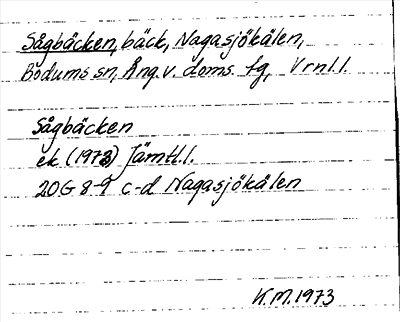 Sågbäcken, bäck, Nagasjökälen,
Bodums sn, Ång. v. doms. fg, Vrnl. l.
Sågbäcken
ek (1973) Jämtl. l.
20G 8-9 c-d Nagasjökälen
K.M. 1973